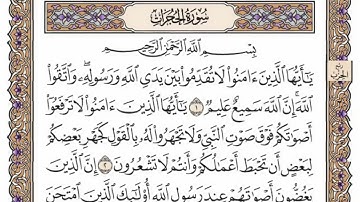 سُورَةُ الحُجُرَاتِ
بِسْمِ اللَّهِ الرَّحْمَٰنِ الرَّحِيمِ
يَٰٓأَيُّهَا الَّذِينَ ءَامَنُوا۟ لَا تُقَدِّمُوا۟ بَيْنَ يَدَىِ اللَّهِ وَرَسُولِهِۦ ۖ وَاتَّقُوا۟
اللَّهَ ۚ إِنَّ اللَّهَ سَمِيعٌ عَلِيمٌ ١ يَٰٓأَيُّهَا الَّذِينَ ءَامَنُوا۟ لَا تَرْفَعُوٓا۟
أَصْوَٰتَكُمْ فَوْقَ صَوْتِ النَّبِىِّ وَلَا تَجْهَرُوا۟ لَهُۥ بِالْقَوْلِ كَجَهْرِ بَعْضِكُمْ
لِبَعْضٍ أَن تَحْبَطَ أَعْمَٰلُكُمْ وَأَنتُمْ لَا تَشْعُرُونَ ٢ إِنَّ الَّذِينَ
يَغُضُّونَ أَصْوَٰتَهُمْ عِندَ رَسُولِ اللَّهِ أُو۟لَٰٓئِكَ الَّذِينَ امْتَحَنَ